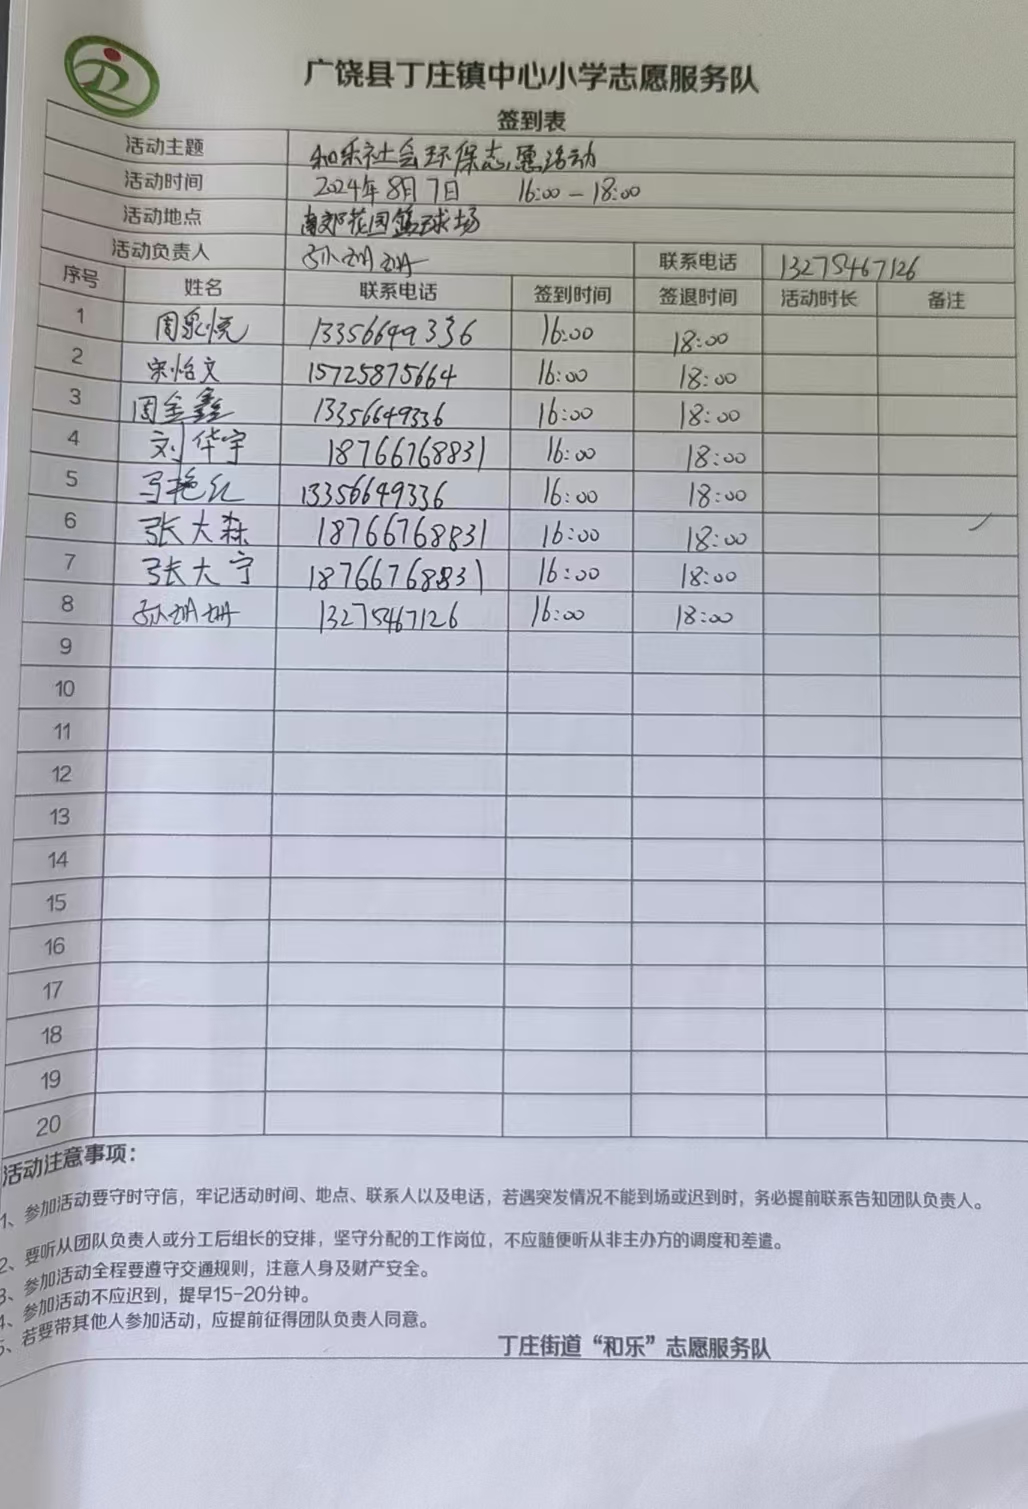 广饶县丁庄镇中心小学志愿服务队
签到表
活动主题 和乐社会环保志愿活动
活动时间 2024年8月7日 16:00-18:00
活动地点 南郊花园篮球场
活动负责人 孙珊珊 联系电话 13275467126
序号 姓名 联系电话 签到时间 签退时间 活动时长 备注
1 周泉悦 13356649336 16:00 18:00
2 宋怡文 15725875664 16:00 18:00
3 周金鑫 13356649336 16:00 18:00
4 刘华宇 18766768831 16:00 18:00
5 马艳红 13356649336 16:00 18:00
6 张大森 18766768831 16:00 18:00
7 张大宁 18766768831 16:00 18:00
8 孙珊珊 13275467126 16:00 18:00
9
10
11
12
13
14
15
16
17
18
19
20
活动注意事项：
1、参加活动要守时守信，牢记活动时间、地点、联系人以及电话，若遇突发情况不能到场或迟到时，务必提前联系告知团队负责人。
2、要听从团队负责人或分工后组长的安排，坚守分配的工作岗位，不应随便听从非主办方的调度和差遣。
3、参加活动全程要遵守交通规则，注意人身及财产安全。
4、参加活动不应迟到，提早15-20分钟。
5、若要带其他人参加活动，应提前征得团队负责人同意。
丁庄街道“和乐”志愿服务队